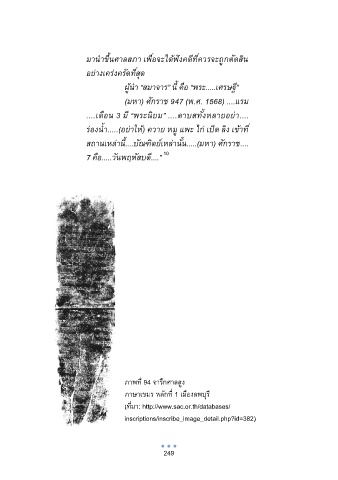 มานำขึ้นศาลสภา เพื่อจะได้ฟังคดีที่ควรจะถูกตัดสิน
อย่างเคร่งครัดที่สุด
ผู้นำ "สมาจาร" นี้ คือ "พระ.....เศรษฐี"
(มหา) ศักราช 947 (พ.ศ. 1568) ....แรม
....เดือน 3 มี "พระนิยม" ....ดาบสทั้งหลายอย่า....
ร่องน้ำ.....(อย่าให้) ควาย หมู แพะ ไก่ เป็ด ลิง เข้าที่
สถานเหล่านี้....บัณฑิตย์เหล่านั้น.....(มหา) ศักราช....
7 คือ.....วันพฤหัสบดี...."
ภาพที่ 94 จารึกศาลสูง
ภาษาเขมร หลักที่ 1 เมืองลพบุรี
(ที่มา: http://www.sac.or.th/databases/
inscriptions/inscribe_image_detail.php?id=382)
249